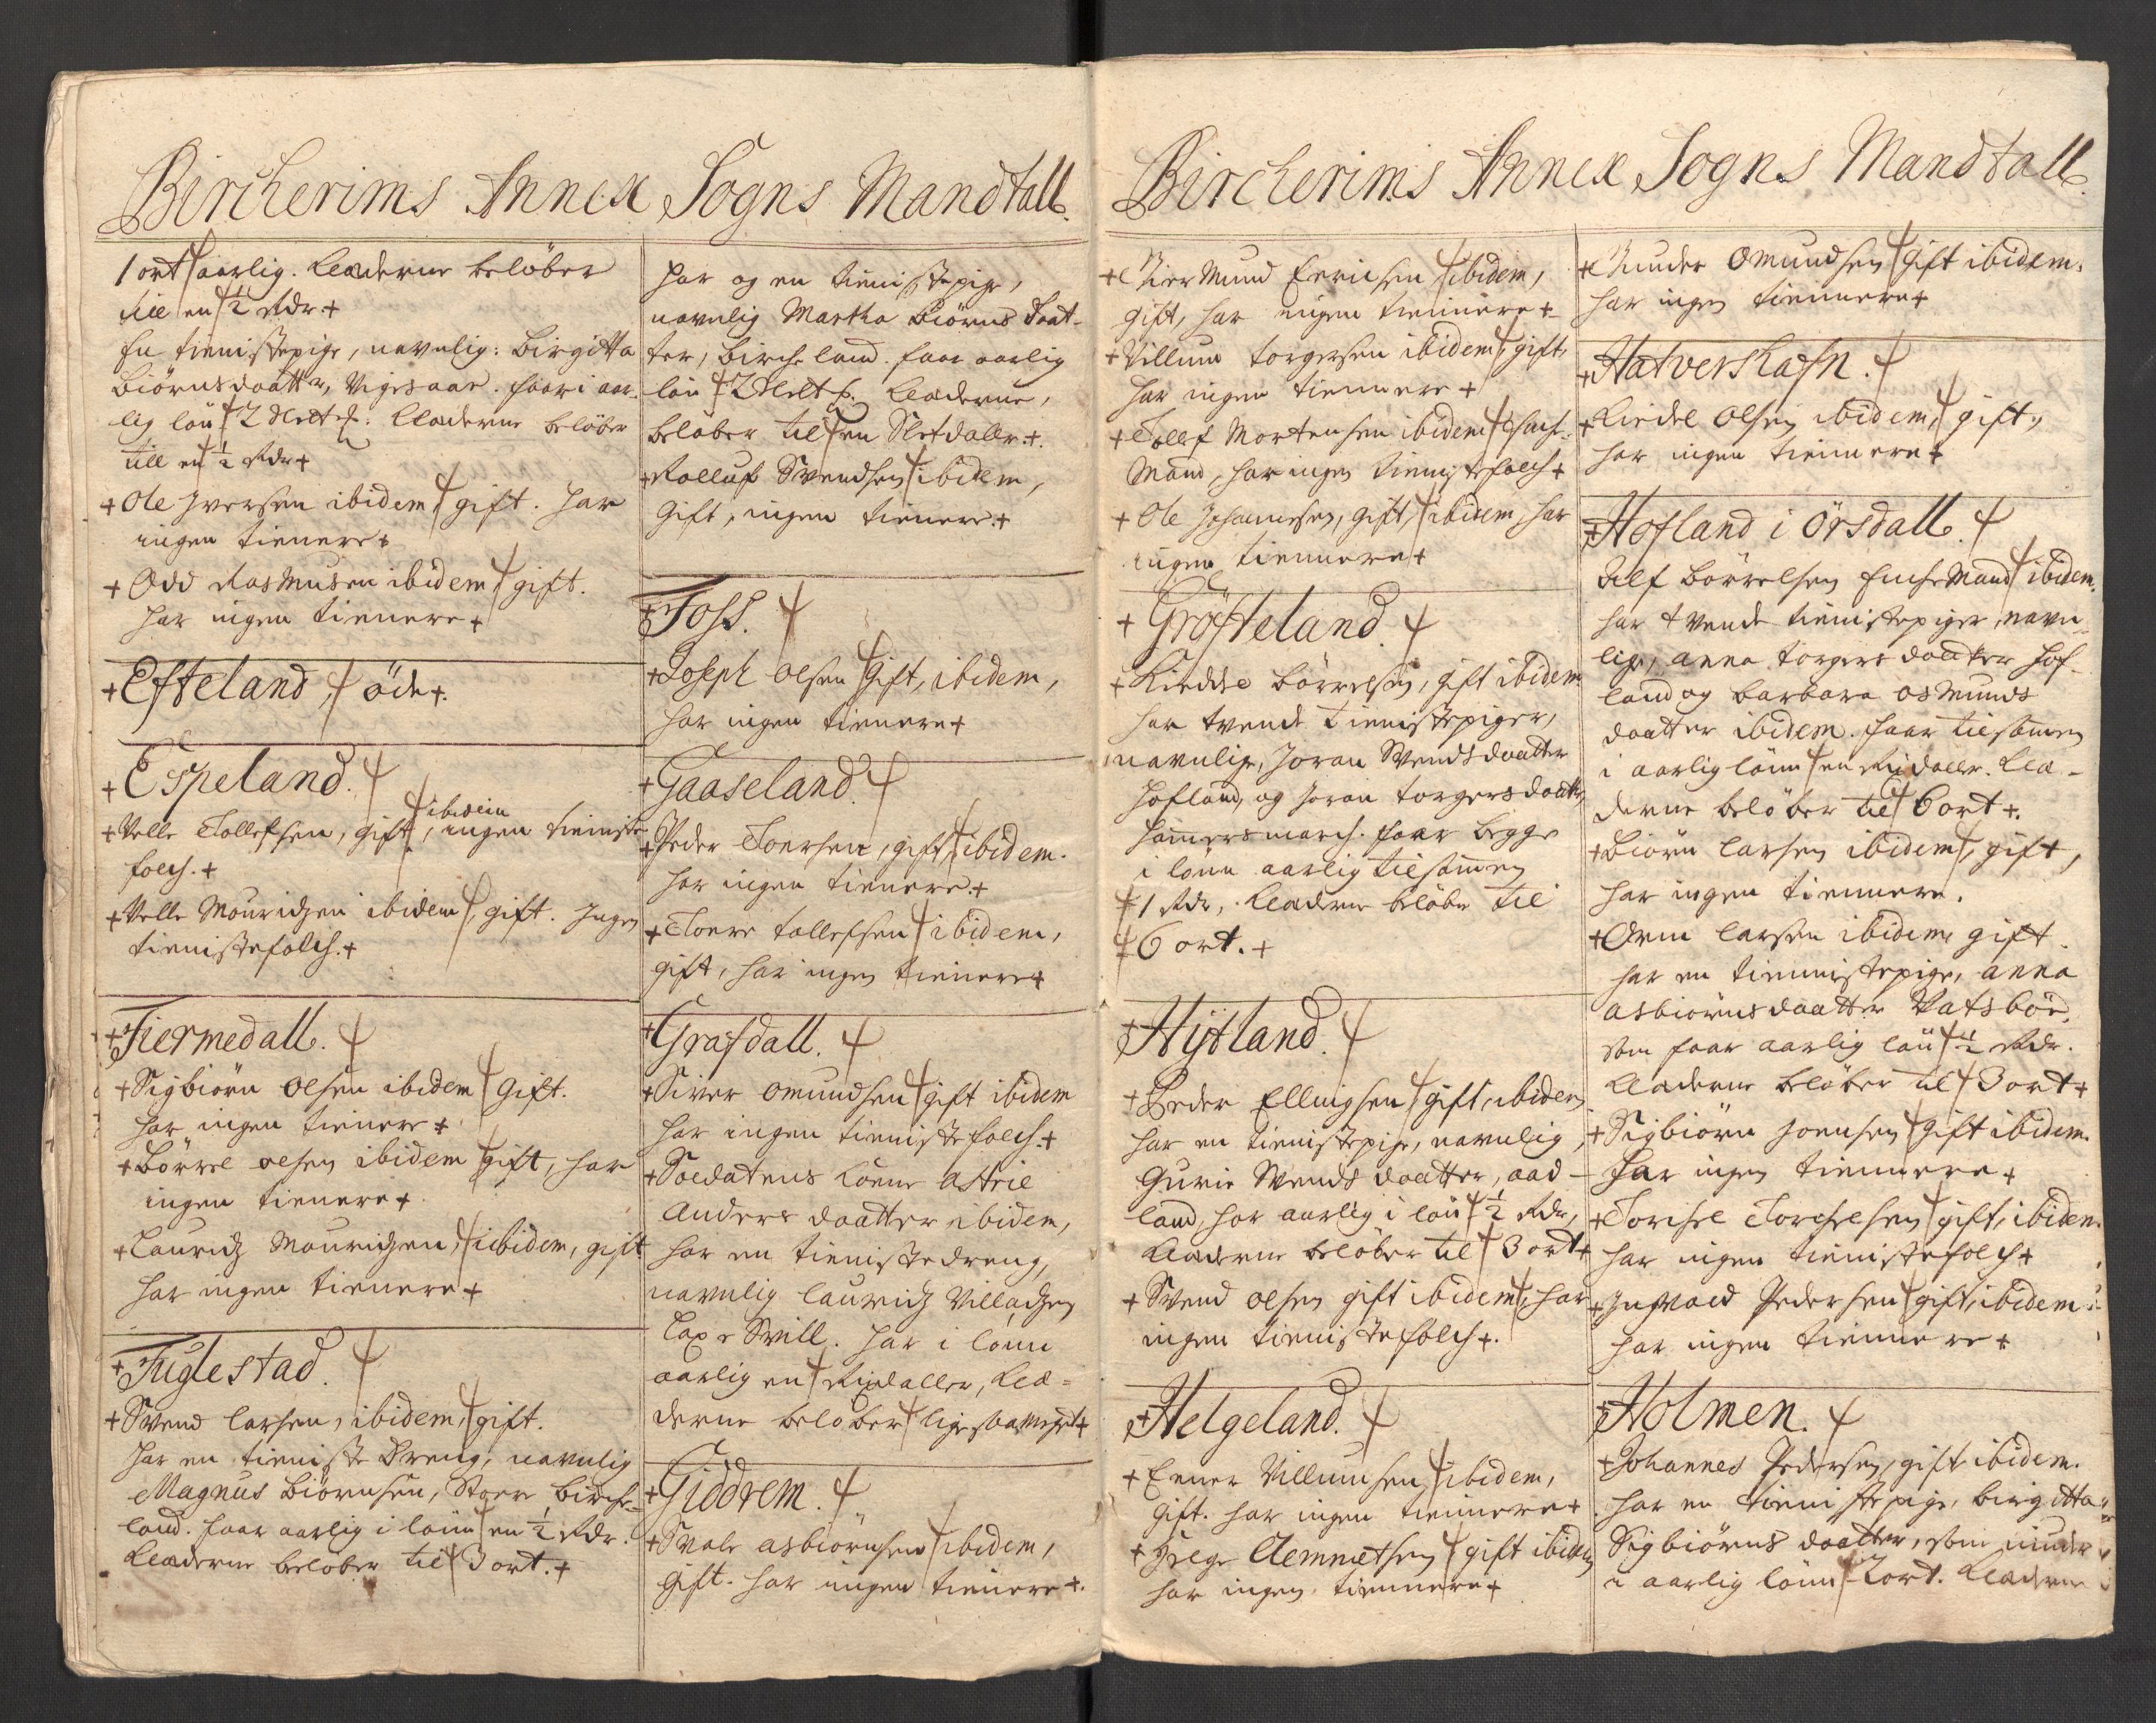 Bircherims Annex Sogns Mandtall.
1 ort aarlig. Klæderne beløber
till en ½ Rdr +
En tienistepige, navnlig: Birgitta
Biørnsdaatter, Vigesaae. faar i aar-
lig løn 2 Slet d: Klæderne beløber
till en ½ Rdr +
+ Ole Iversen ibidem, gift. har
ingen tienere +
+ Odd Rasmusen ibidem, gift.
har ingen tienere +
+ Efteland, øde +.
+ Espeland.
+ Velle Tollefsen, gift, ibidem, ingen tieniste
folch. +
+ Velle Mouridzen ibidem, gift. Ingen
tienistefolch. +
+ Fiermedall.
+ Sigbiørn Olsen ibidem Gift.
har ingen tienere +
+ Børre Olsen ibidem gift, har
ingen tienere +
+ Lauridz Mouridzen, ibidem, gift
har ingen tienere +
+ Fuglestad.
+ Svend Larsen, ibidem, gift.
har en tieniste dreng, navnlig
Magnus Biørnsen, Store Birche-
land. faar aarlig i løn en ½ Rdr.
Klæderne beløber til 3 ort. +
har og en tienistepige,
navnlig Martha Biørns Daat-
ter, Bircheland. faar aarlig
løn 2 Slet d. Klæderne,
beløber til en Sletdaller +.
+ Rolluf Svendsen ibidem,
Gift, ingen tienere. +
+ Foss.
+ Joseph Olsen Gift, ibidem,
har ingen tienere +
+ Gaaseland.
+ Peder Toersen, gift, ibidem.
har ingen tienere. +
+ Toere Tollefsen ibidem,
gift, har ingen tienere +
+ Grafdall.
+ Siver Omundsen gift ibidem
har ingen tienistefolch. +
+ Soldatens Kone Astrie
Anders daatter ibidem,
har en tienistedreng,
navnlig Lauridz Villadzen
har i lønn
aarlig en Rixdaller, Klæ-
derne beløber ligesaameget +
+ Giddrem.
+ Svale Asbiørnsen ibidem,
Gift. har ingen tienere +.
Bircherims Annex Sogns Mandtall.
+ Giermund Ericsen ibidem,
gift, har ingen tiennere +
+ Villum Torgersen ibidem, gift,
har ingen tiennere +
+ Tollef Mortensen ibidem
Mand, har ingen tienistefolch +
+ Ole Johannesen, gift, ibidem, har
ingen tiennere +
+ Grøfteland.
+ Kiedde Børrelsen, gift ibidem
har tvende tienistepiger,
navnlige, Joran Svendsdaatter
Hofland, og Joran Torgersdaatter
Hammersmarch. faar begge
i lønn aarlig tilsammen
1 Rdr, Klæderne beløber til
6 ort. +
+ Hytland.
+ Peder Ellingsen gift, ibidem
har en tienistepige, navnlig,
Gurie Svends daatter, Aad-
land, har aarlig i løn ½ Rdr,
Klæderne beløber til 3 ort +
+ Svend Olsen gift ibidem, har
ingen tienistefolch +.
+ Helgeland.
+ Enner Villumsen, ibidem,
Gift. har ingen tiennere +
+ Helge Clemmetsen gift ibidem
har ingen tiennere +
+ Gunder Omundsen Gift ibidem.
har ingen tiennere +
+ Hatvershafn.
+ Kiedel Olsen ibidem, gift,
har ingen tiennere +
+ Hofland i Ørsdall.
Alf Børrelsen Enche Mand ibidem.
har tvende tienistepiger, navn-
lige, Anna Torgers daatter Hof-
land og Barbara Osmunds
daatter ibidem. faar tilsammen
i aarlig lønn en Rixdaller. Klæ-
derne beløber til 6 ort +.
+ Biørn Larsen ibidem, gift,
har ingen tiennere.
+ Orm Larsen ibidem gift.
har en tiennistepige, Anna
Asbiørnsdaatter Vatsbøe,
som faar aarlig løn ½ Rdr.
Klæderne beløber til 3 ort +
+ Sigbiørn Joensen Gift ibidem.
har ingen tiennere +
+ Torchel Torchelsen gift, ibidem.
har ingen tienistefolch +
+ Ingvold Pedersen gift, ibidem.
har ingen tiennere +
+ Holmen.
+ Johannes Pedersen, gift ibidem.
har en tienistepige, Birgitta
Sigbiørns daatter, som nyder
i aarlig lønn 2 ort. Klæderne